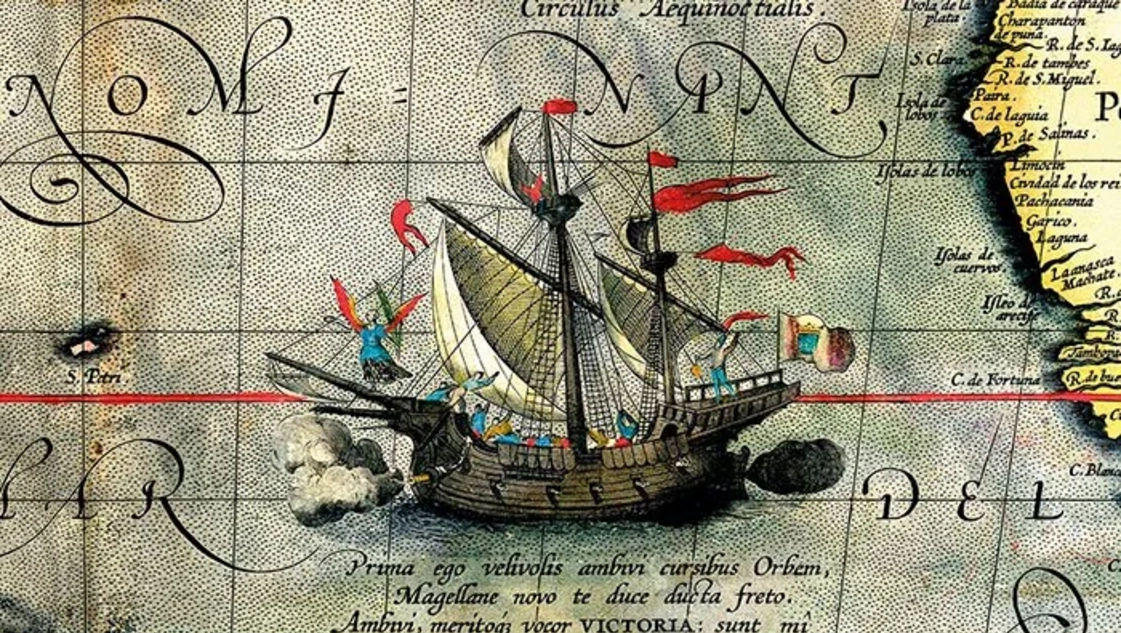 Circulus Aequinoctialis.
NOMI=NANT
Isola de la
plata.
S. Clara
Isola de
lobos
Isolas de lobos
Isolas de
cuervos.
Isleo de
arecife
C. de Fortuna
C. Blanc
Badia de caraque
Charapanton
de puna.
R. de S. Iag
R. de tambes
R. de S. Miguel.
Paira.
C. de laguia
P. de Salinas.
Limocin
Cividad de los rei
Pachacania
Garico.
Laguna
Machate.
R. de bue
S. Petri
MAR DEL
Prima ego velivolis ambivi cursibus Orbem,
Magellane novo te duce ducta freto.
Ambivi, meritoq3 vocor VICTORIA: sunt mî